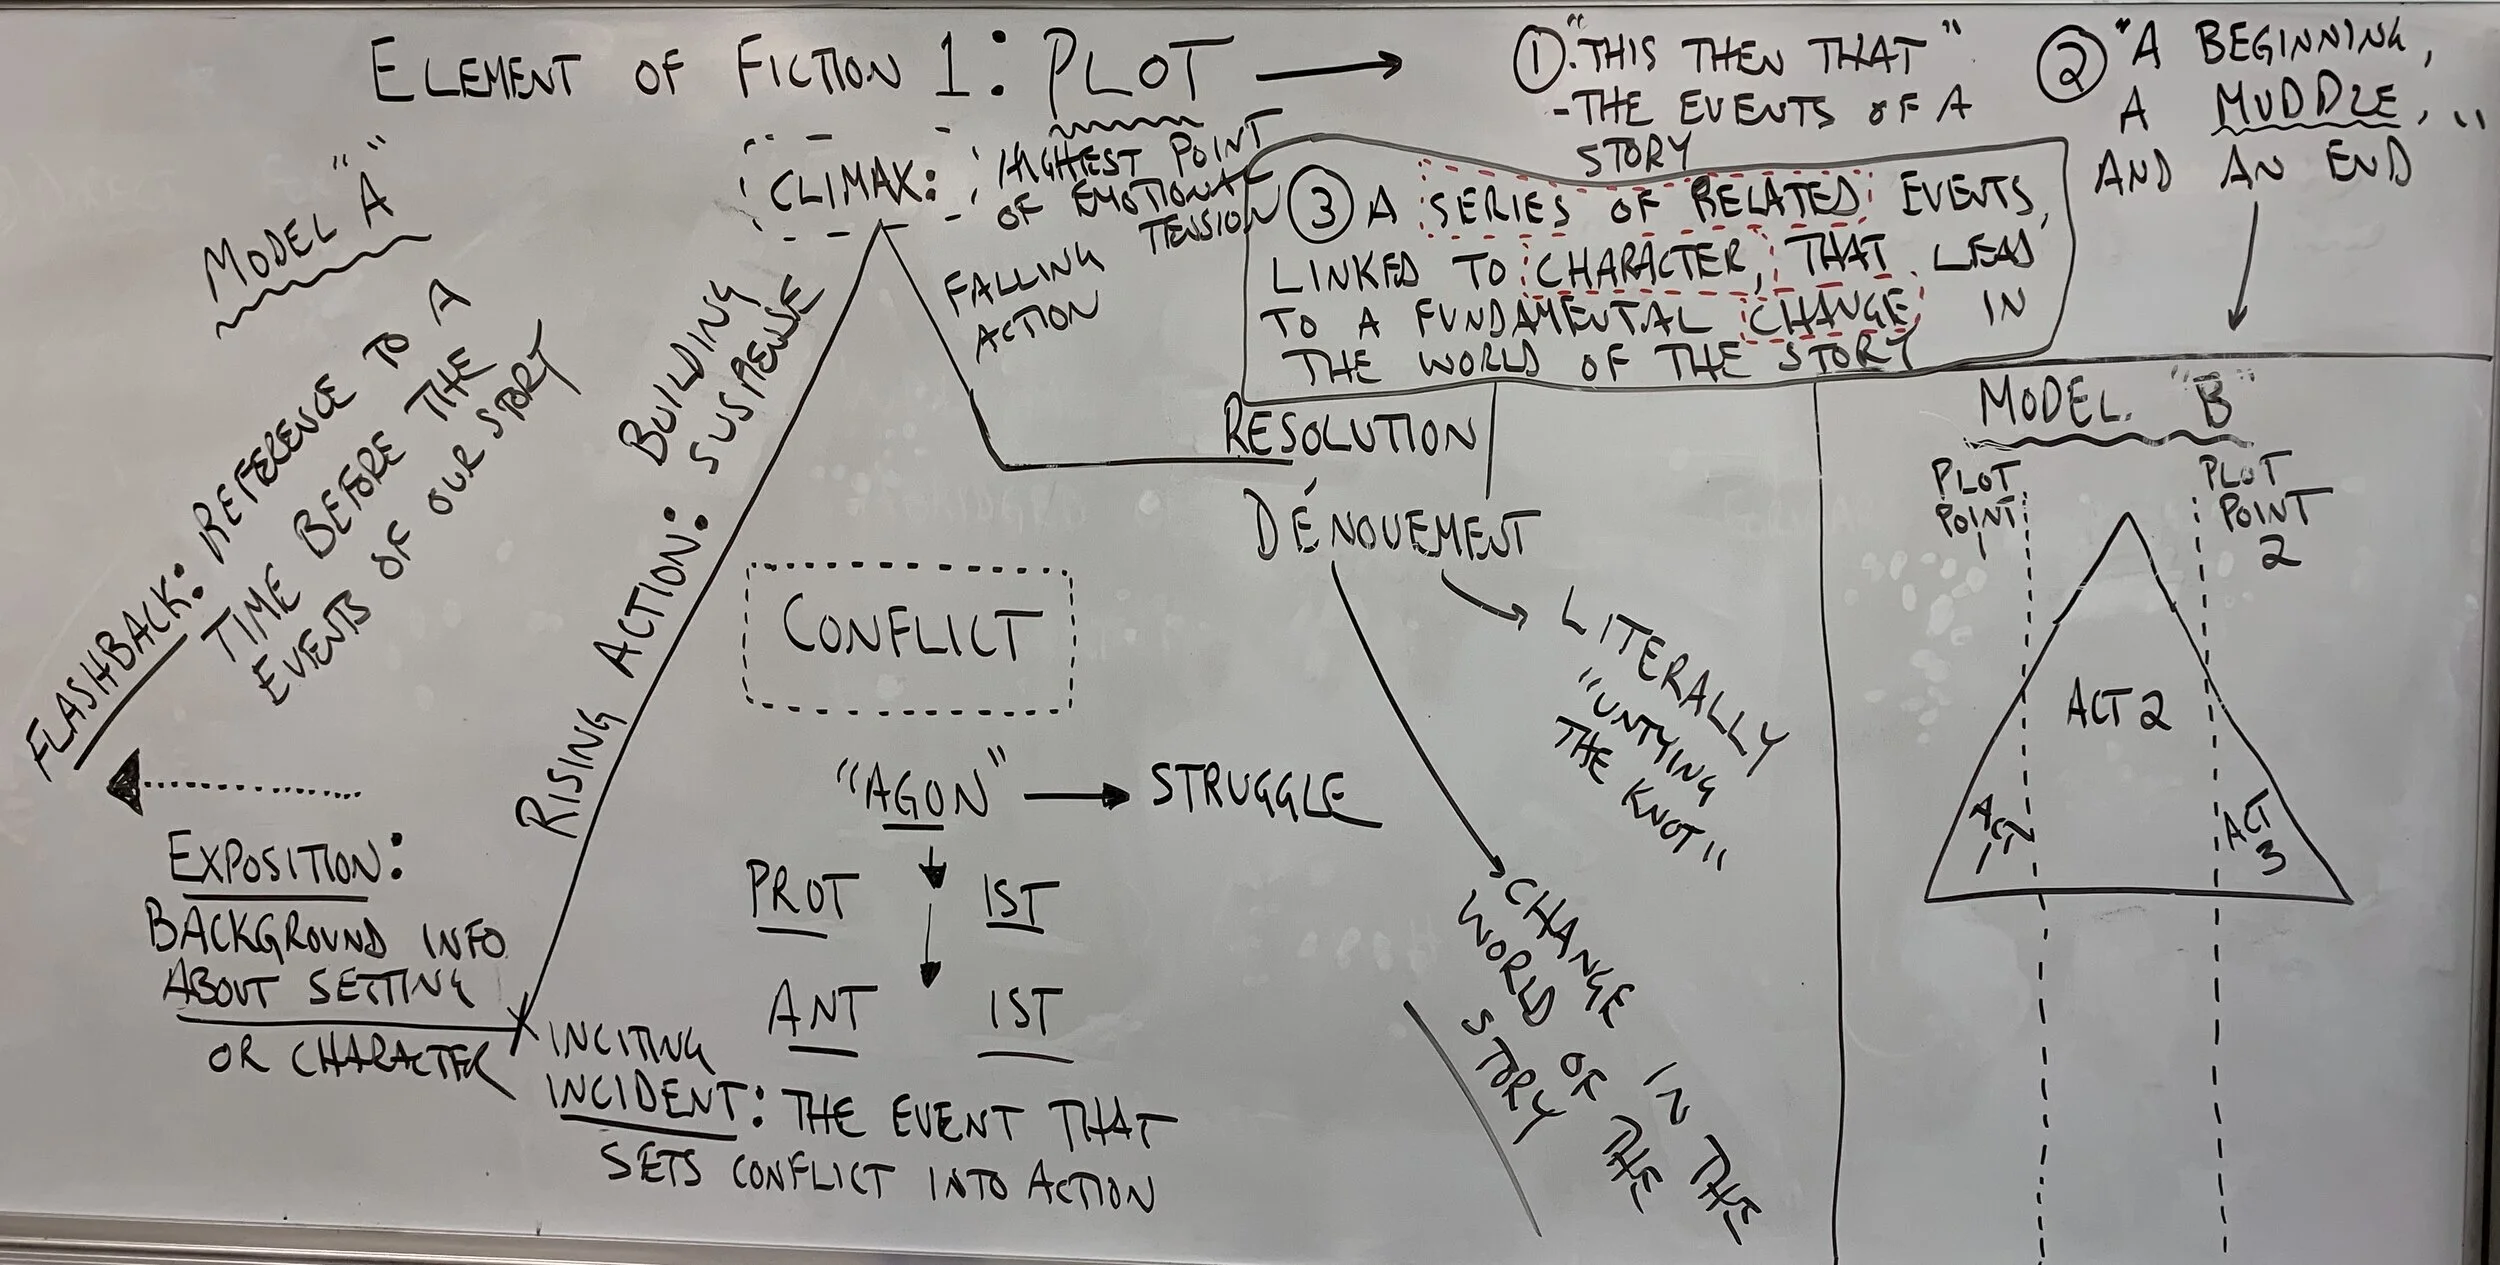 ELEMENT OF FICTION 1: PLOT →
① "THIS THEN THAT"
- THE EVENTS OF A
STORY
② "A BEGINNING,
A MUDDLE,
AND AN END"
③ A SERIES OF RELATED EVENTS,
LINKED TO CHARACTER, THAT LEAD
TO A FUNDAMENTAL CHANGE IN
THE WORLD OF THE STORY
MODEL "A"
FLASHBACK: REFERENCE TO A
TIME BEFORE THE
EVENTS OF OUR STORY
EXPOSITION:
BACKGROUND INFO
ABOUT SETTING
OR CHARACTER
INCITING
INCIDENT: THE EVENT THAT
SETS CONFLICT INTO ACTION
RISING ACTION: BUILDING
SUSPENSE
CLIMAX: HIGHEST POINT
OF EMOTIONAL
TENSION
FALLING
ACTION
RESOLUTION
DÉNOUEMENT
LITERALLY
"UNTYING
THE KNOT"
CHANGE IN THE
WORLD OF THE
STORY
CONFLICT
"AGON" → STRUGGLE
PROT IST
ANT IST
MODEL "B"
PLOT
POINT
1
PLOT
POINT
2
ACT
1
ACT 2
ACT
3